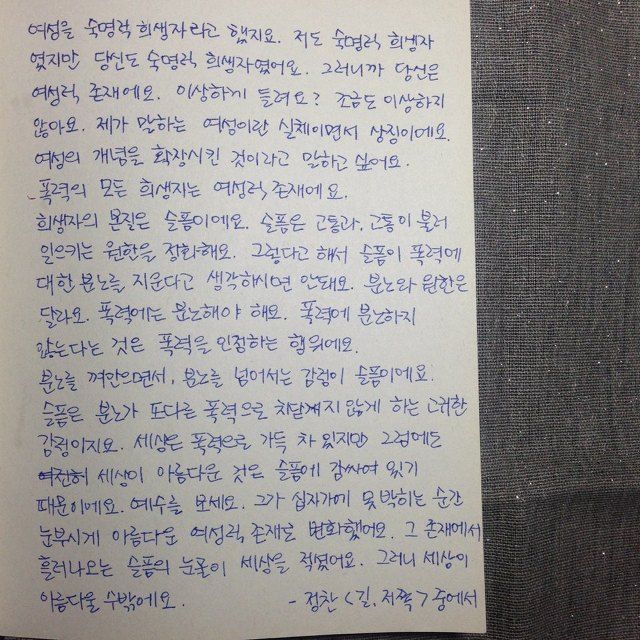 여성을 숙명적 희생자라고 했지요. 저도 숙명적 희생자
였지만 당신도 숙명적 희생자였어요. 그러니까 당신은
여성적 존재에요. 이상하게 들려요? 조금도 이상하지
않아요. 제가 말하는 여성이란 실체이면서 상징이에요.
여성의 개념을 확장시킨 것이라고 말하고 싶어요.
폭력의 모든 희생자는 여성적 존재에요.
희생자의 본질은 슬픔이에요. 슬픔은 고통과, 고통이 불러
일으키는 원한을 정화해요. 그렇다고 해서 슬픔이 폭력에
대한 분노를 지운다고 생각하시면 안돼요. 분노와 원한은
달라요. 폭력에는 분노해야 해요. 폭력에 분노하지
않는다는 것은 폭력을 인정하는 행위에요.
분노를 껴안으면서, 분노를 넘어서는 감정이 슬픔이에요.
슬픔은 분노가 또다른 폭력으로 치닫게지 않게 하는 고귀한
감정이지요. 세상은 폭력으로 가득 차 있지만 그럼에도
여전히 세상이 아름다운 것은 슬픔에 감싸여 있기
때문이에요. 예수를 보세요. 그가 십자가에 못 박히는 순간
눈부시게 아름다운 여성적 존재로 변화했어요. 그 존재에서
흘러나오는 슬픔의 눈물이 세상을 적셨어요. 그러니 세상이
아름다울 수밖에요. - 정찬 <길, 저쪽> 중에서